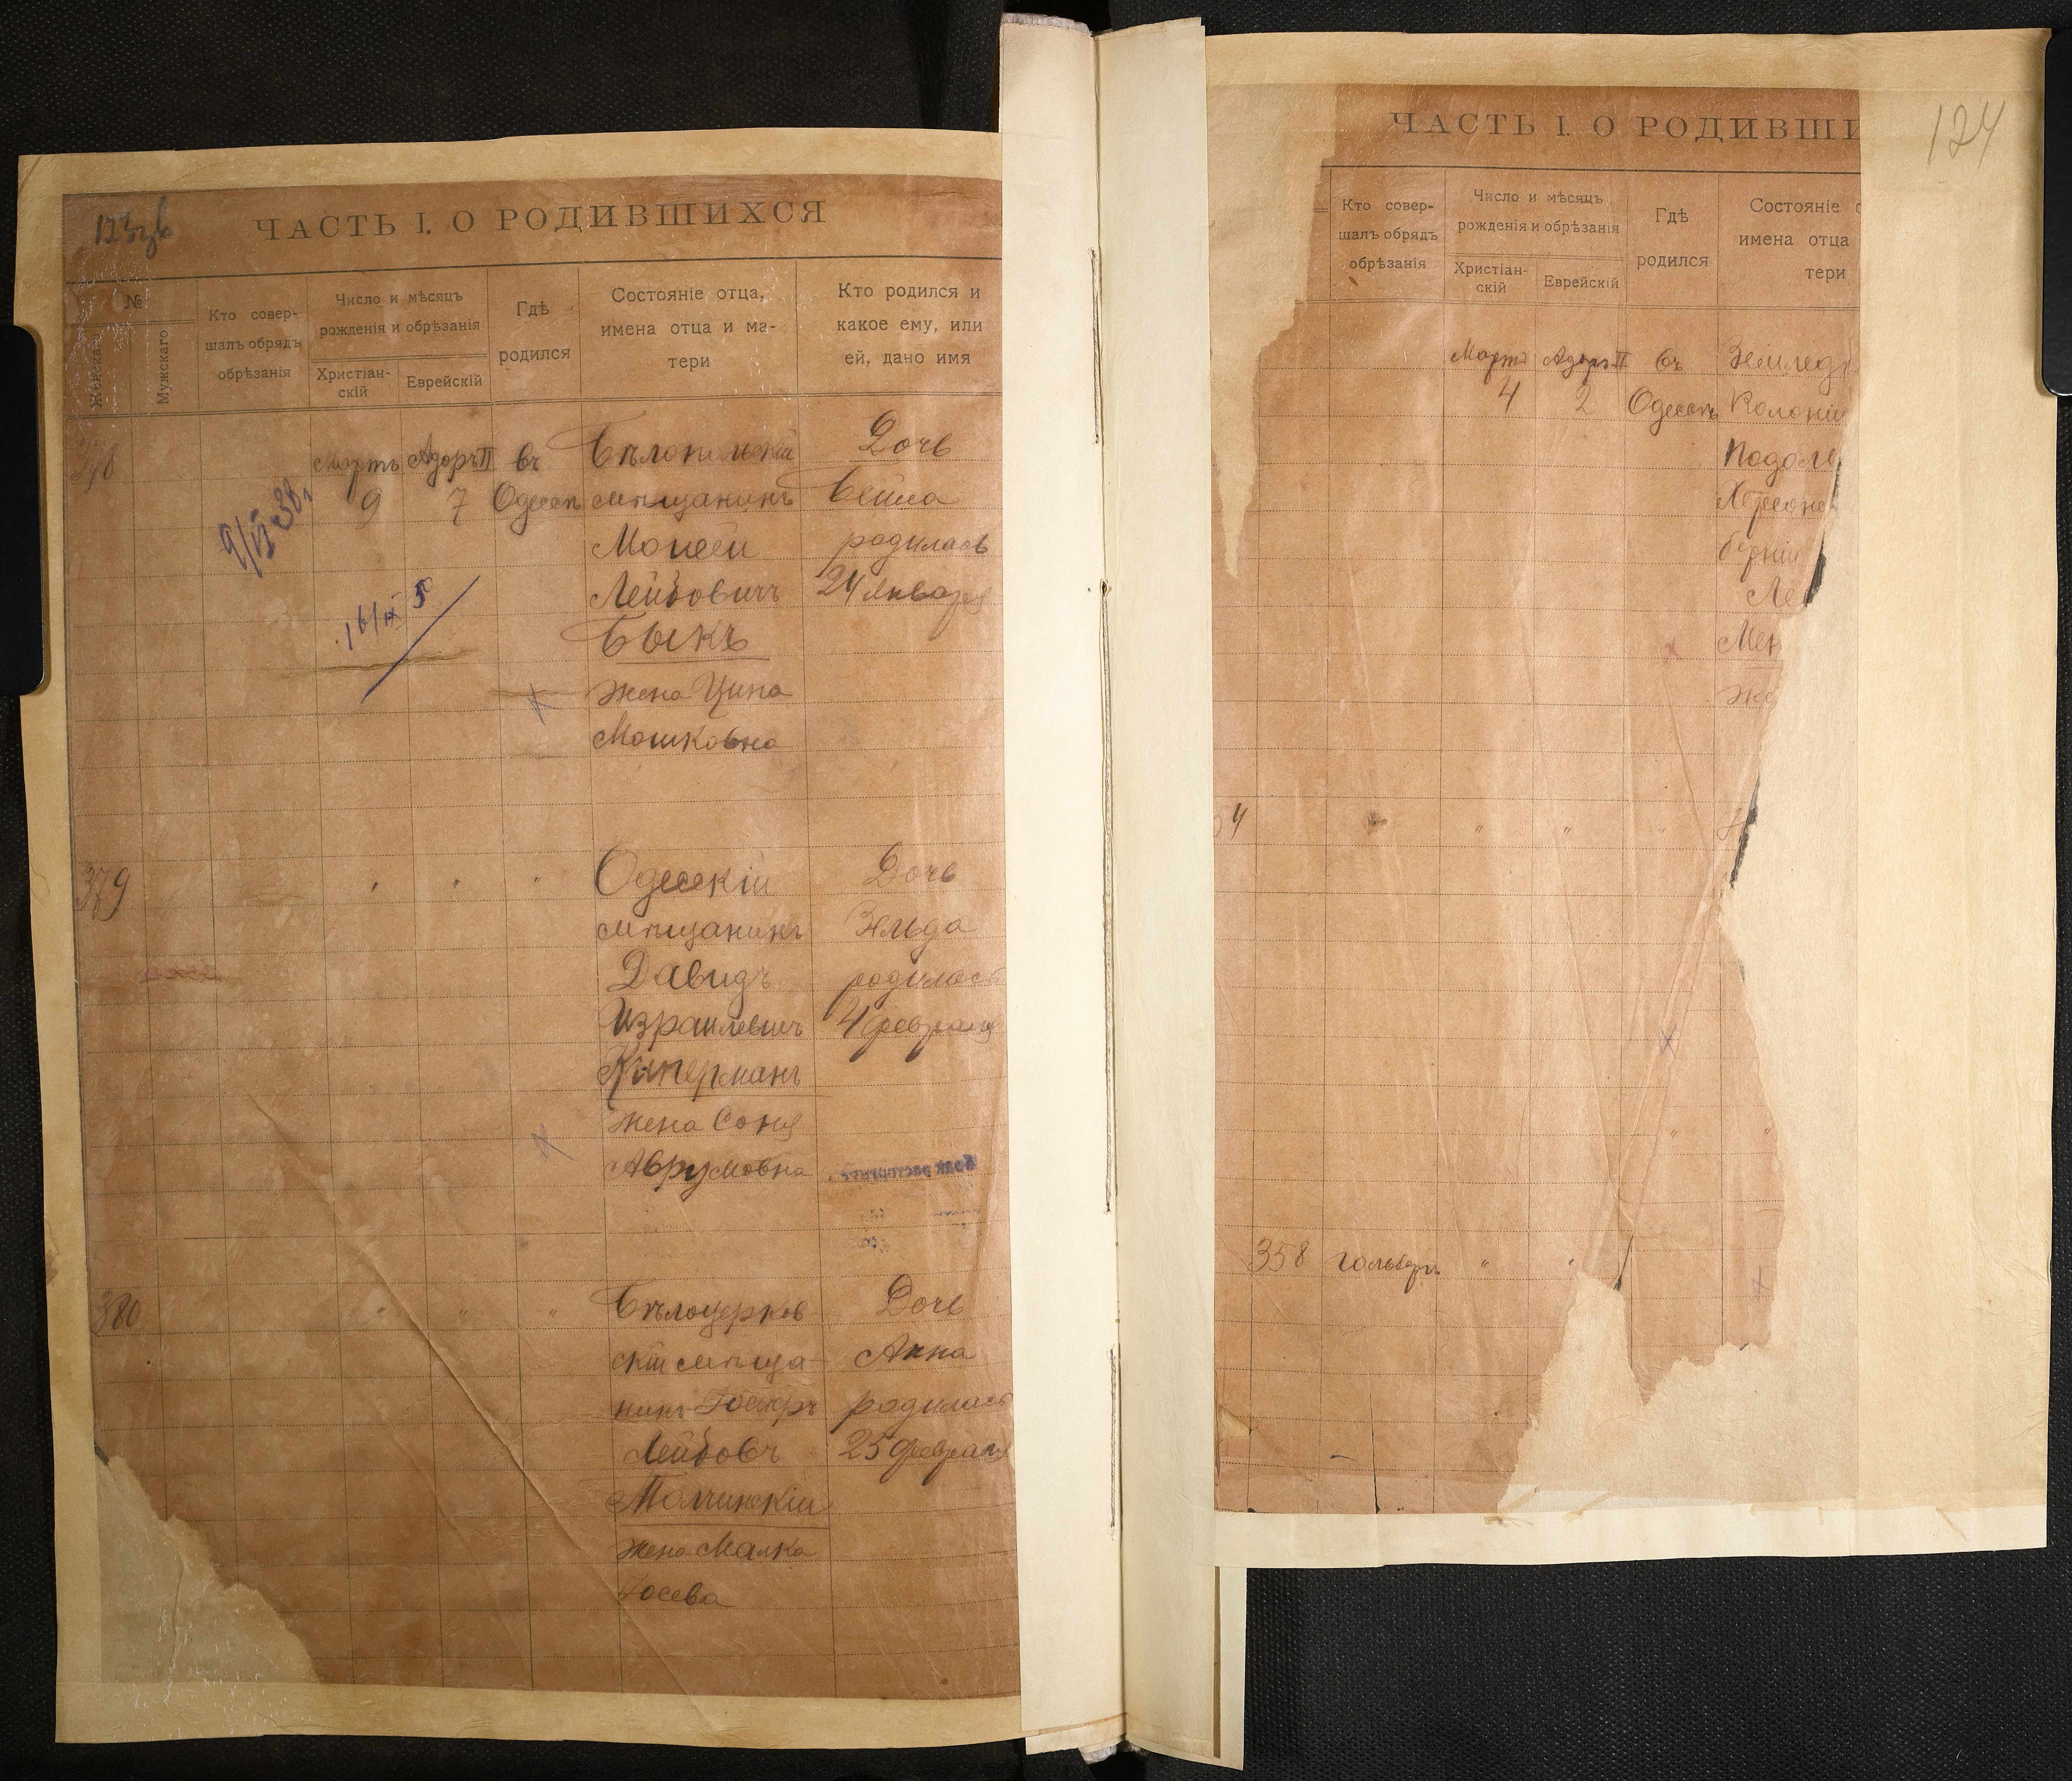 ЧАСТЬ I. О РОДИВШИХСЯ
№
Женскаго
Мужскаго
Кто совер-
шалъ обрядъ
обрѣзанія
Число и мѣсяцъ
рожденія и обрѣзанія
Христіан-
скій
Еврейскій
Гдѣ
родился
Состояніе отца,
имена отца и ма-
тери
Кто родился и
какое ему, или
ей, дано имя
378
Мартъ Адоръ II въ
9 7 Одессѣ
мѣщанинъ
Моисей
Лейбовичъ
Быкъ
жена Ципа
Мошковна
Дочь
Бейла
родилась
24 Января
379
Одесскій
мѣщанинъ
Давидъ
Израилевичъ
жена Соня
Аврумовна
Дочь
Зельда
родилась
4 февраля
380
Бѣлоцерков
скій мѣща-
нинъ
Лейбовъ
жена Малка
Іосева
Дочь
Анна
родилась
25 февраля
124
ЧАСТЬ I. О РОДИВШИ
Кто совер-
шалъ обрядъ
обрѣзанія
Число и мѣсяцъ
рожденія и обрѣзанія
Христіан-
скій
Еврейскій
Гдѣ
родился
Состояніе о
имена отца
тери
Мартъ Адоръ II въ Землед
4 2 Одессѣ Колоніи
Херсонс
берніи
Ле
Мен
же
4
358